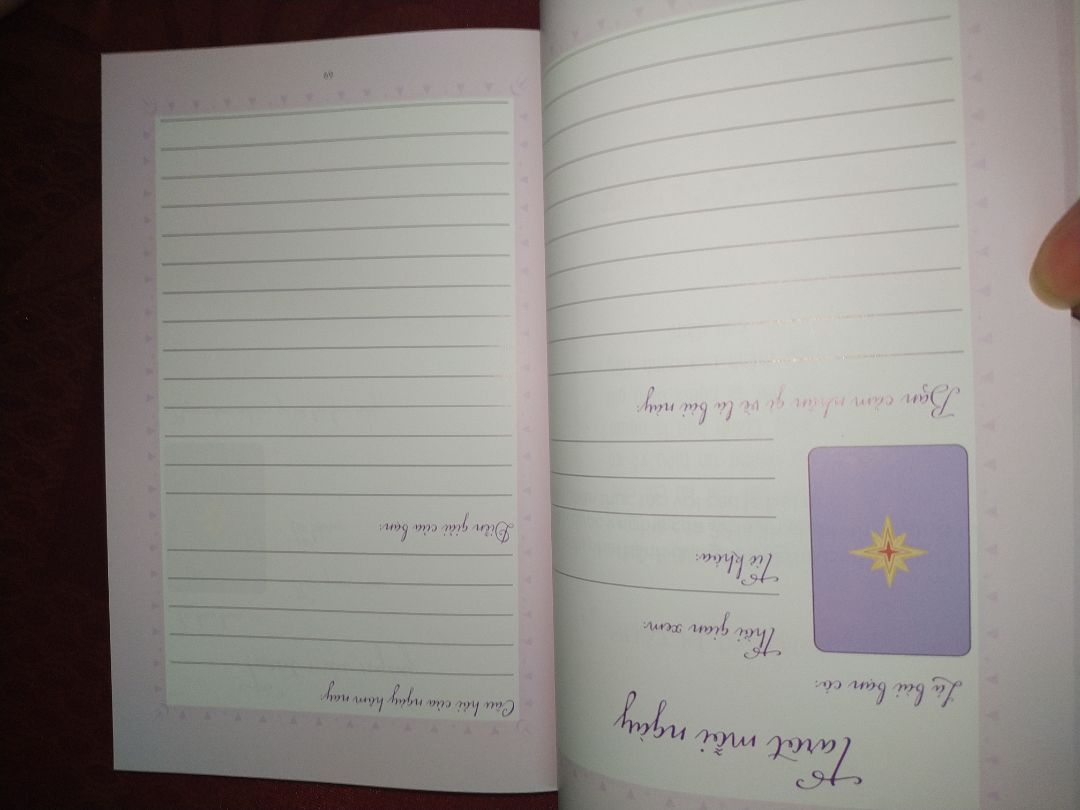 Tarot mỗi ngày
Lá bài bạn có:
Thời gian xem:
Từ khóa:
Bạn cảm nhận gì về lá bài này:
Câu hỏi của ngày hôm nay:
Diễn giải của bạn:
69